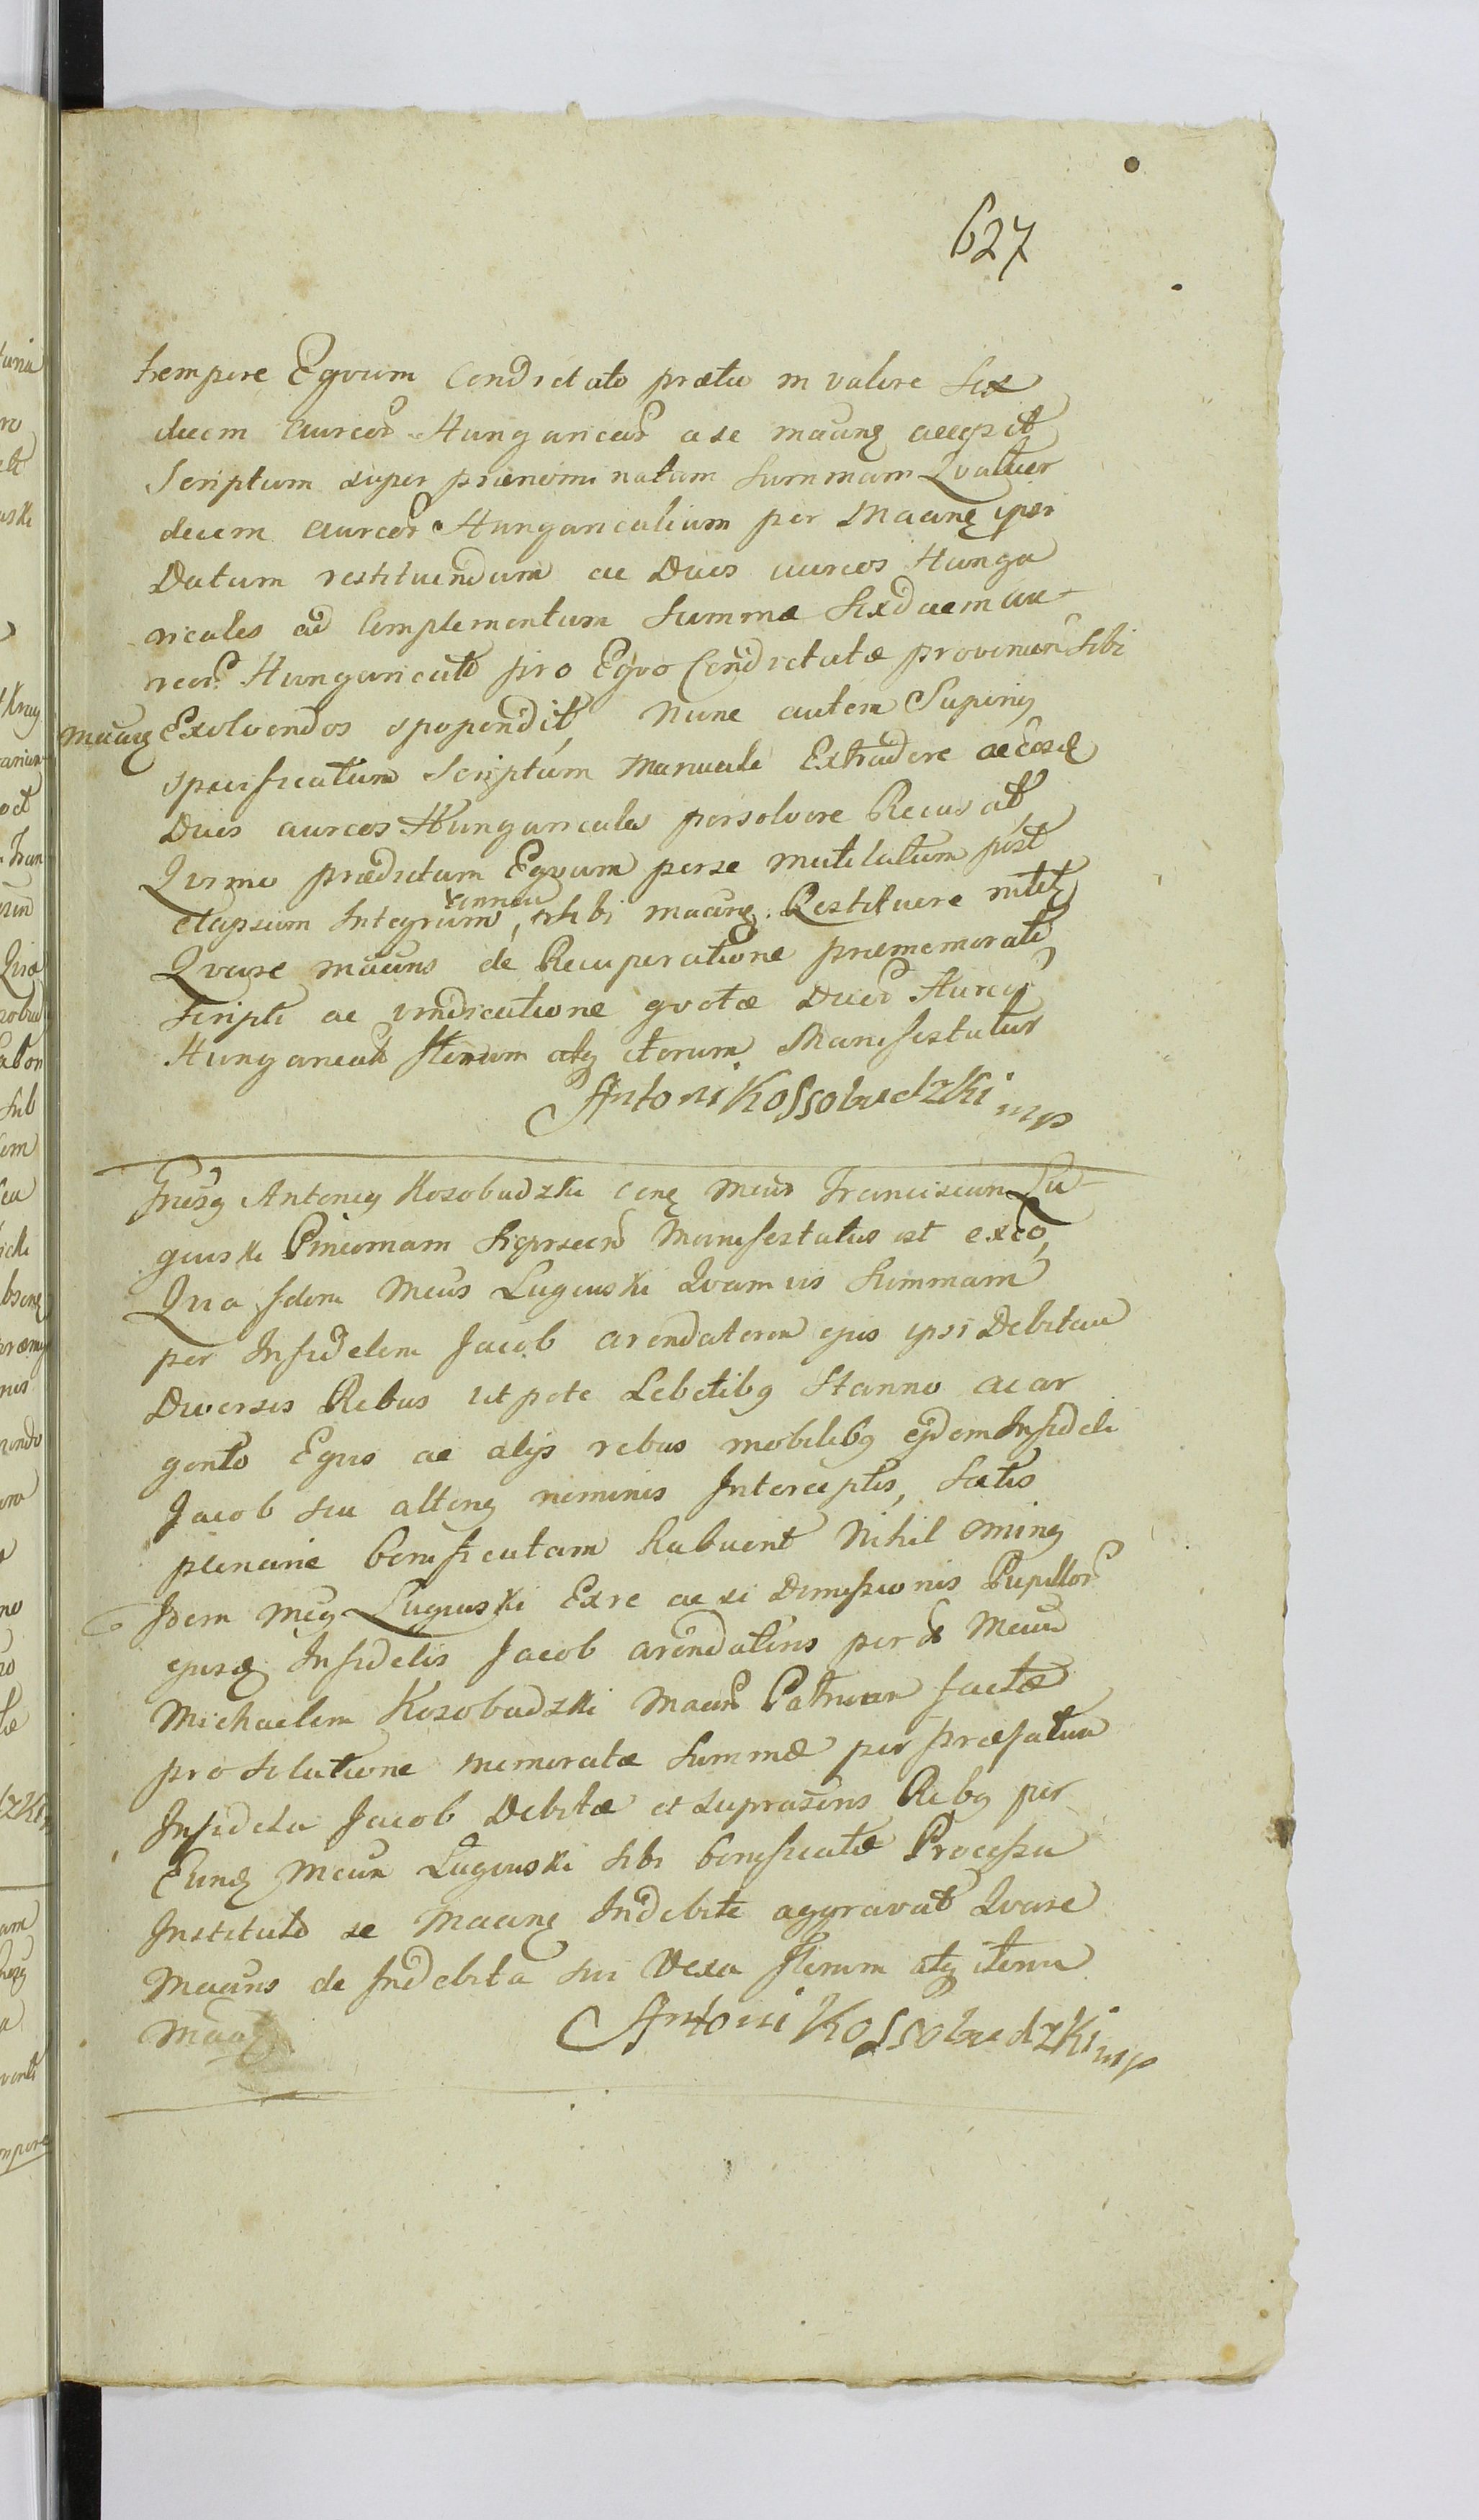 627
tempore Equum Condictato prætio in valore Sex
decem Aureor Hungarical a se mãnte accepit
Scriptum super prænominatam Summam Quatuor
decem Aureor Hungaricalium per Mãntem ipsi
Datum restituendum ac Duos aureos Hunga
ricales ad Complementum Summæ Sexdecem au-
reor Hungarical pro Equo Condictatæ provenien sibi
Exolvendos spopondit, Nunc autem Superius
specificatum Scriptum Manuale Extradere ac eosq
Duos aureos Hungaricales persolvere Recusat,
Quimo prædictum Equum per se mutilatum post
elapsum Integrum, Annum sibi Restituere nitit
Quare mãns de Recuperatione præmemorati
Scripti ac vindicatione quotæ Duor Aureor
Hungarical Iterum atq iterum Manifestatur
Antoni Kossobudzki mp
Antonius Kosobudzki Franciscum Lu-
giewski Manifestatus est ex eo,
Qua Idem Lugiewski Quamvis Summam
per Infidelem Jacob arendatorem ejus ipsi Debitam
Diversis Rebus utpote Lebetibq Stanno ac ar
gento Equis ac alijs rebus mobilibq ejdem Infideli
Jacob seu alterius nominis Interceptis, Satis
plenarie bonificatam habuerit Nihil ominus
Idem Lugiewski Ex re ac si Dimissionis Pupillor
ejusd Infidelis Jacob arendatoris per
Michaelem Kosobudzki Patruum factæ
pro Solutione memoratæ Summæ per præfatum
Infidelem Jacob Debitæ et suprascris Rebq per
Eund Lugiewski sibi bonificatæ Processu
Instituto se Indebite aggravat Quare
de Indebita sui Vexa Iterum atq iterum
Antoni Kossobudzki mp